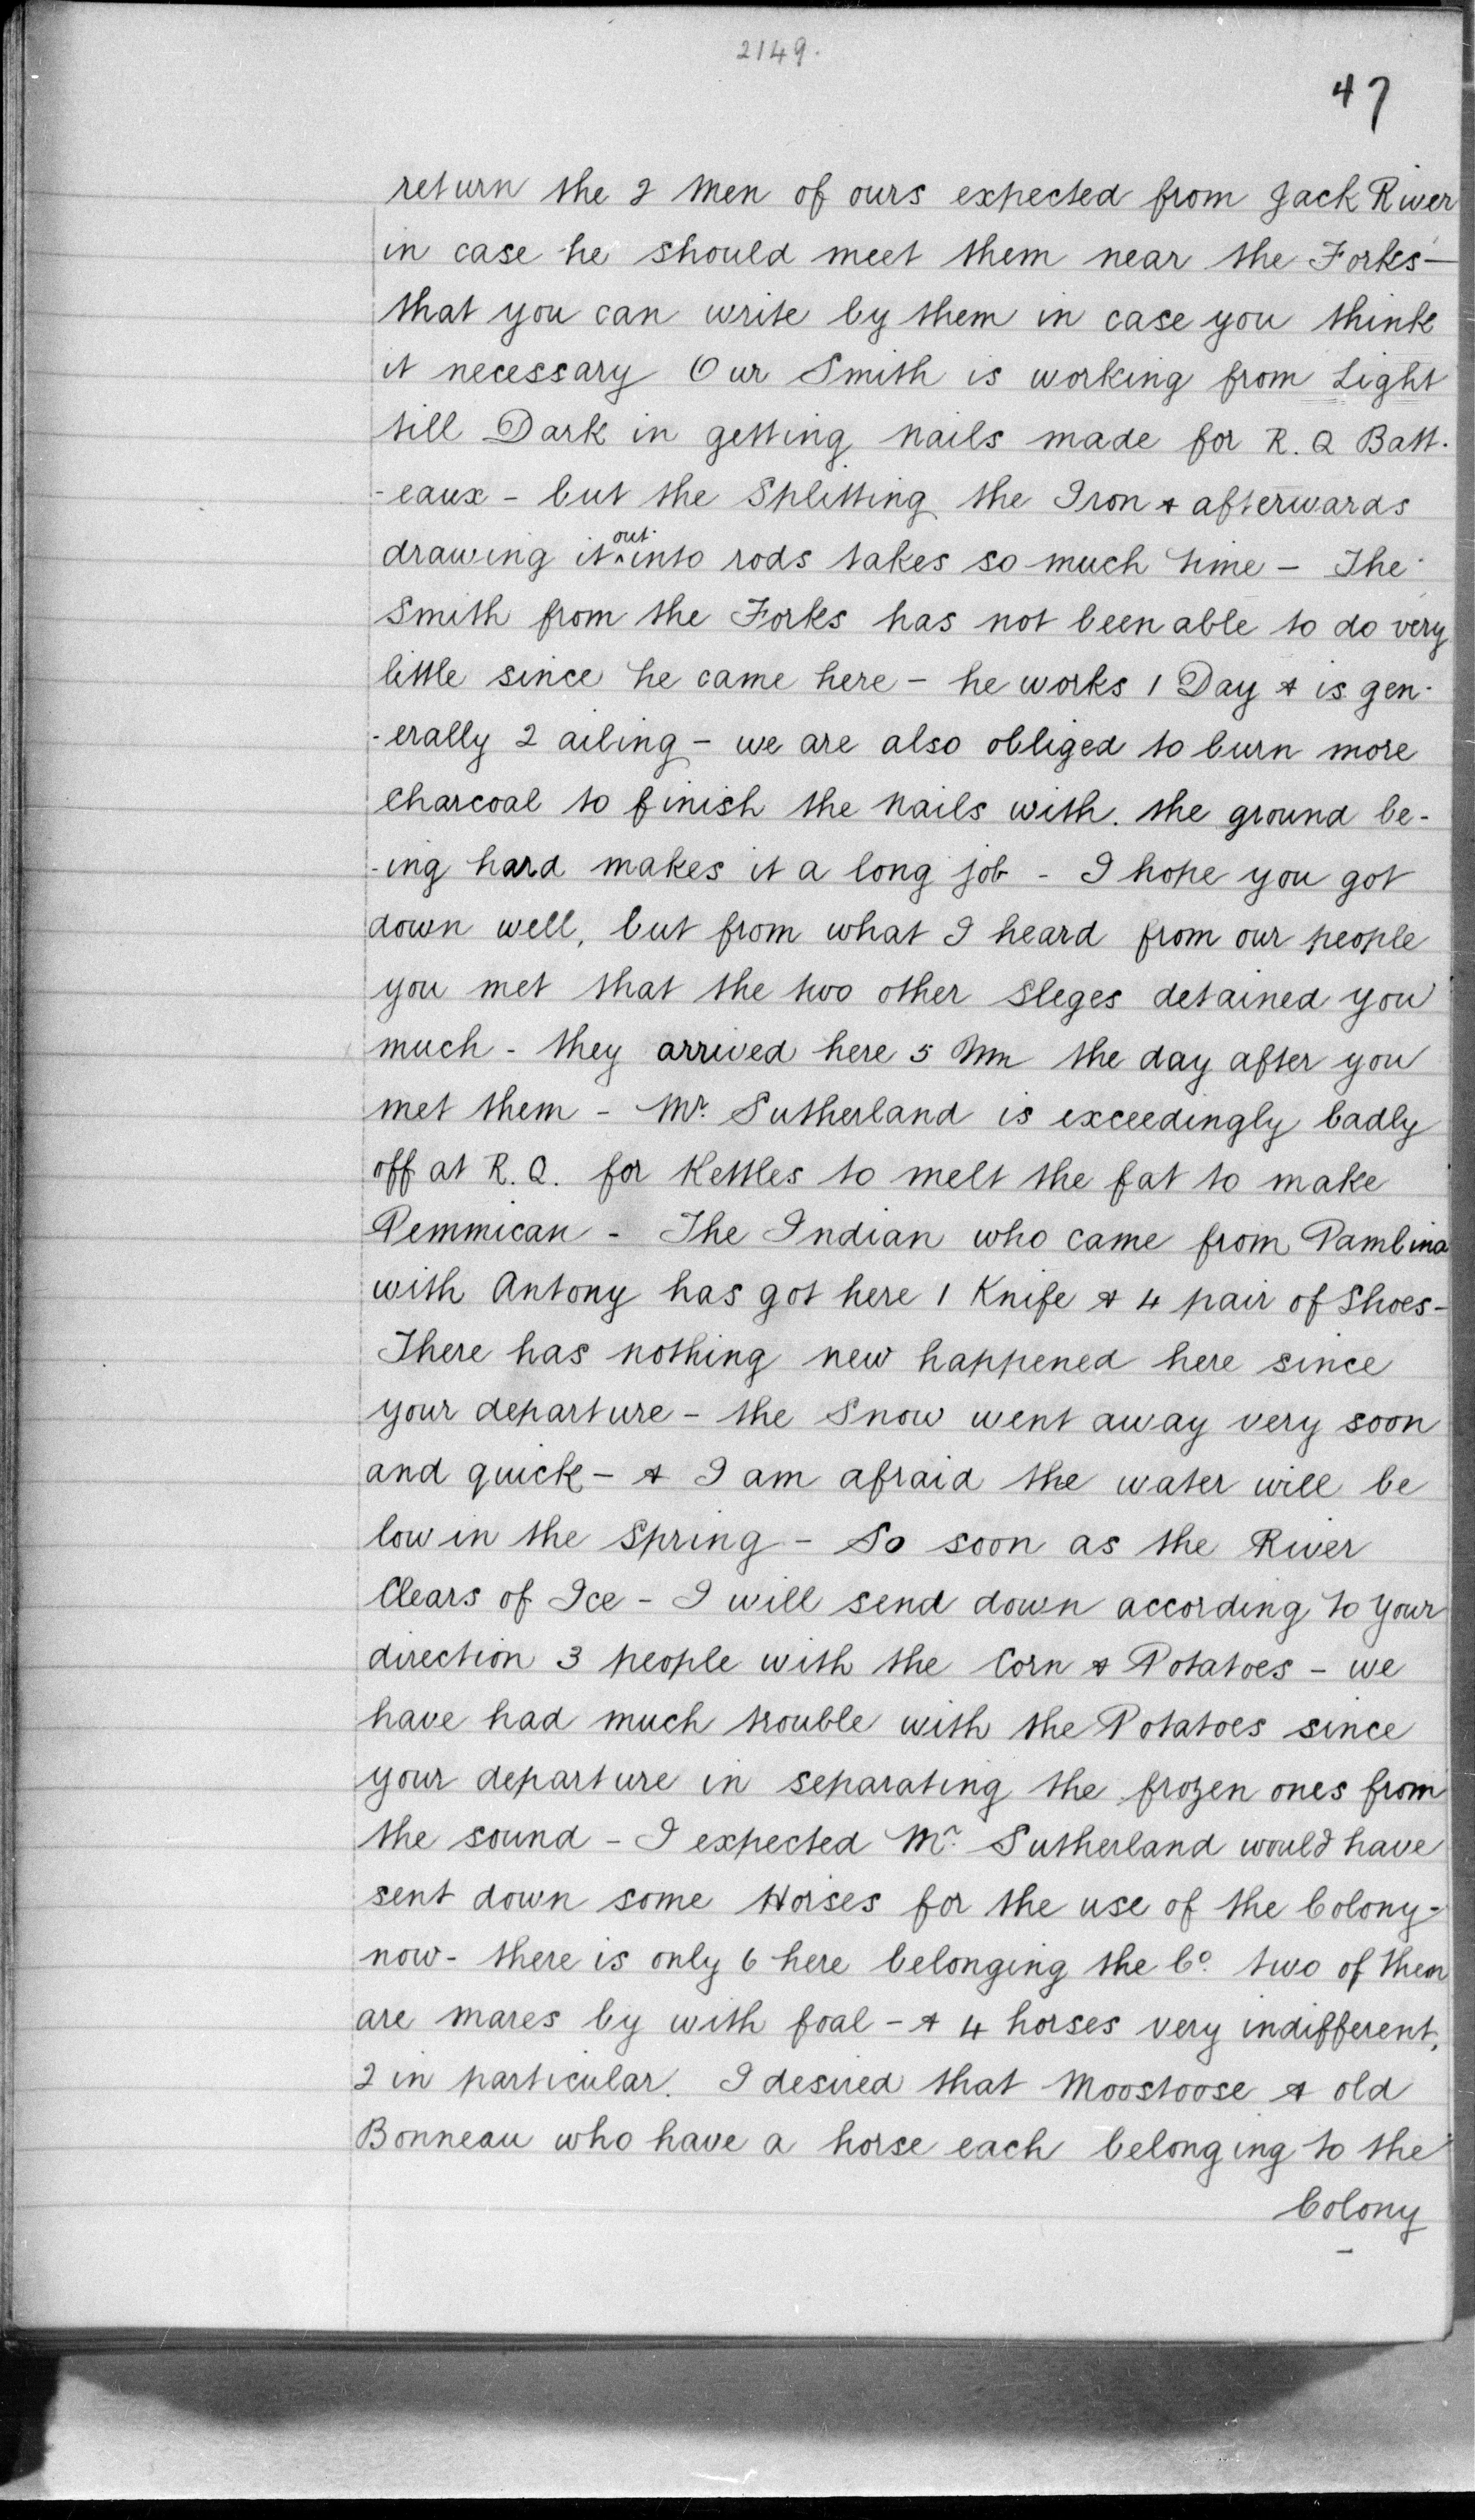 2149.
47
return the 2 Men of ours expected from Jack River
in case he should meet them near the Forks —
that you can write by them in case you think
it necessary Our Smith is working from Light
till Dark in getting nails made for R. Q Batt-
-eaux - but the Splitting the Iron & afterwards
drawing it ^out into rods takes so much time - The
Smith from the Forks has not been able to do very
little since he came here - he works 1 Day & is gen-
-erally 2 ailing - we are also obliged to burn more
Charcoal to finish the Nails with. the ground be-
-ing hard makes it a long job - I hope you got
down well, but from what I heard from our people
you met that the two other Sleges detained you
much - they arrived here 5 Mn the day after you
met them - Mr. Sutherland is exceedingly badly
off at R. Q. for Kettles to melt the fat to make
Pemmican - The Indian who came from Pambina
with Antony has got here 1 Knife & 4 pair of Shoes -
There has nothing new happened here since
your departure - the Snow went away very soon
and quick - & I am afraid the water will be
low in the Spring - So soon as the River
Clears of Ice - I will send down according to your
direction 3 people with the Corn & Potatoes - we
have had much trouble with the Potatoes since
your departure in separating the frozen ones from
the sound - I expected Mr. Sutherland would have
sent down some Horses for the use of the Colony -
now - there is only 6 here belonging the Co. two of them
are mares by with foal - & 4 horses very indifferent,
2 in particular. I desired that Moostoose & old
Bonneau who have a horse each belonging to the
Colony